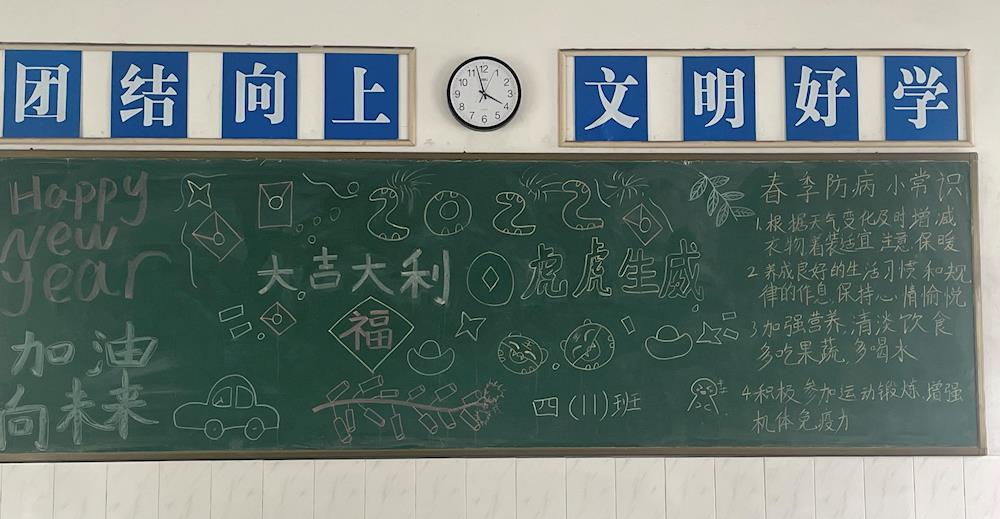 团结向上
文明好学
12
1
2
3
4
5
6
7
8
9
10
11
Happy
New
year
加油
向未来
2022
大吉大利
虎虎生威
福
四(11)班
春季防病小常识
1.根据天气变化及时增减
衣物着装适宜 注意保暖
2 养成良好的生活习惯和规
律的作息,保持心情愉悦
3 加强营养,清淡饮食
多吃果蔬,多喝水
4 积极参加运动锻炼,增强
机体免疫力